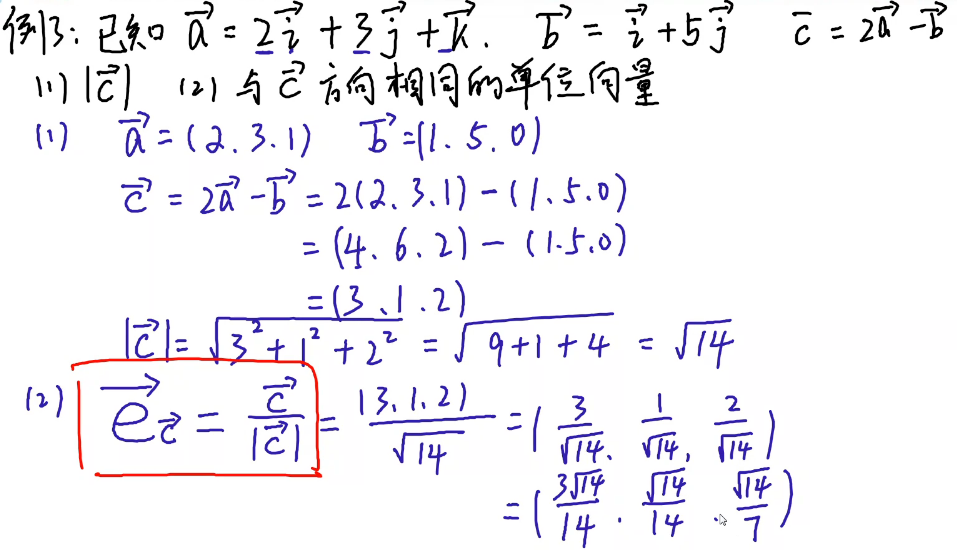 例13: 已知 a⃗ = 2i⃗ + 3j⃗ + k⃗. b⃗ = i⃗ + 5j⃗ c̄ = 2a⃗ - b⃗
(1) |c⃗| (2) 与 c⃗ 方向相同的单位向量
(1) a⃗ = (2. 3. 1) b⃗ = (1. 5. 0)
c⃗ = 2a⃗ - b⃗ = 2(2. 3. 1) - (1. 5. 0)
= (4. 6. 2) - (1. 5. 0)
= (3. 1. 2)
|c⃗| = √(3² + 1² + 2²) = √(9+1+4) = √14
(2) e⃗_c⃗ = c⃗/|c⃗| = (3. 1. 2)/√14 = (3/√14. 1/√14, 2/√14)
= (3√14/14. √14/14. √14/7)